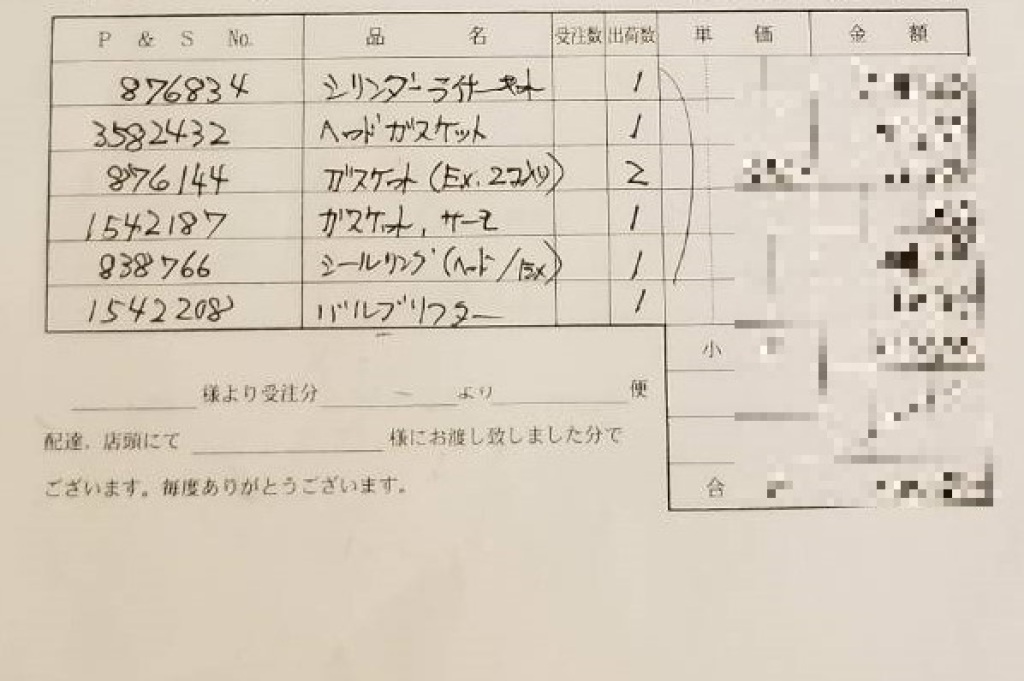 P & S No. 品名 受注数 出荷数 単価 金額
876834 シリンダーライナーキット 1
3582432 ヘッドガスケット 1
876144 ガスケット(Ex. 2コ入り) 2
1542187 ガスケット, サーモ 1
838766 シールリング(ヘッド/Ex) 1
1542208 バルブリフター 1
小
様より受注分 より 便
配達、店頭にて 様にお渡し致しました分で
ございます。毎度ありがとうございます。
合